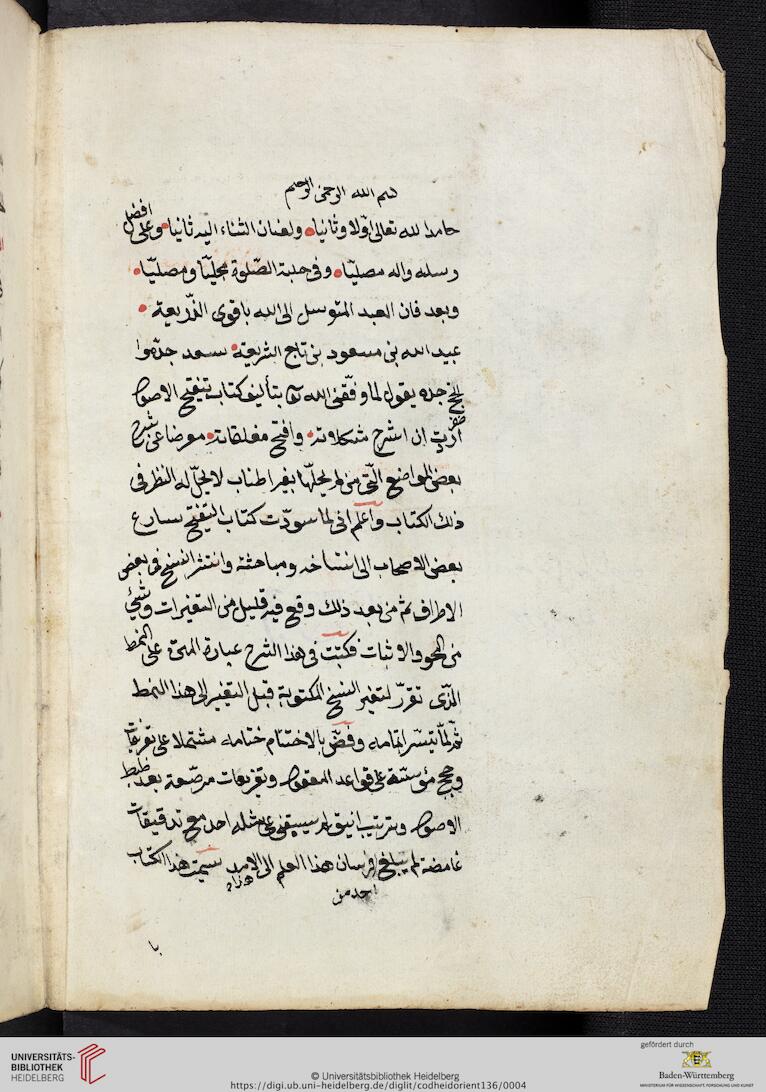 بسم الله الرحمن الرحيم
حامدا لله تعالى اولا وثانيا ولعنان الثناء اليه ثانيا وعلى افضل
رسله واله مصليا وفى حلبة الصلوة مجليا ومصليا
وبعد فان العبد المتوسل الى الله باقوى الذريعة
عبيد الله بن مسعود بن تاج الشريعة سعد جده وا
نجح جده يقول لما وفقنى الله تع بتأليف كتاب تنقيح الاصول
اردت ان اشرح مشكلاته وافتح مغلقاته معرضا عن شرح
بعض المواضع التى من لم يحلها بغير اطناب لا يحل له النظر فى
ذلك الكتاب واعلم انى لما سودت كتاب التنقيح سارع
بعض الاصحاب الى انتساخه ومباحثته وانتشر النسخ فى بعض
الاطراف ثم من بعد ذلك وقع فيه قليل من التغيرات وشئ
من المحو والاثبات فكتبت فى هذا الشرح عبارة المتن على النمط
الذى تقرر لتغير النسخ المكتوبة قبل التغيير الى هذا النمط
ثم لما تيسر اتمامه وفض بالاختتام ختامه مشتملا على تعريفات
وحجج مؤسسة على قواعد المعقول وتفريعات مرصعة بعد ضبط
الاصول وترتيب انيق لم يسبقنى على مثله احد مع تدقيقات
غامضة لم يبلغ فرسان هذا العلم الى الامد سميت هذا الكتاب
احد من
هذا
با
UNIVERSITÄTS-
BIBLIOTHEK
HEIDELBERG
© Universitätsbibliothek Heidelberg
https://digi.ub.uni-heidelberg.de/diglit/codheidorient136/0004
gefördert durch
Baden-Württemberg
MINISTERIUM FÜR WISSENSCHAFT, FORSCHUNG UND KUNST